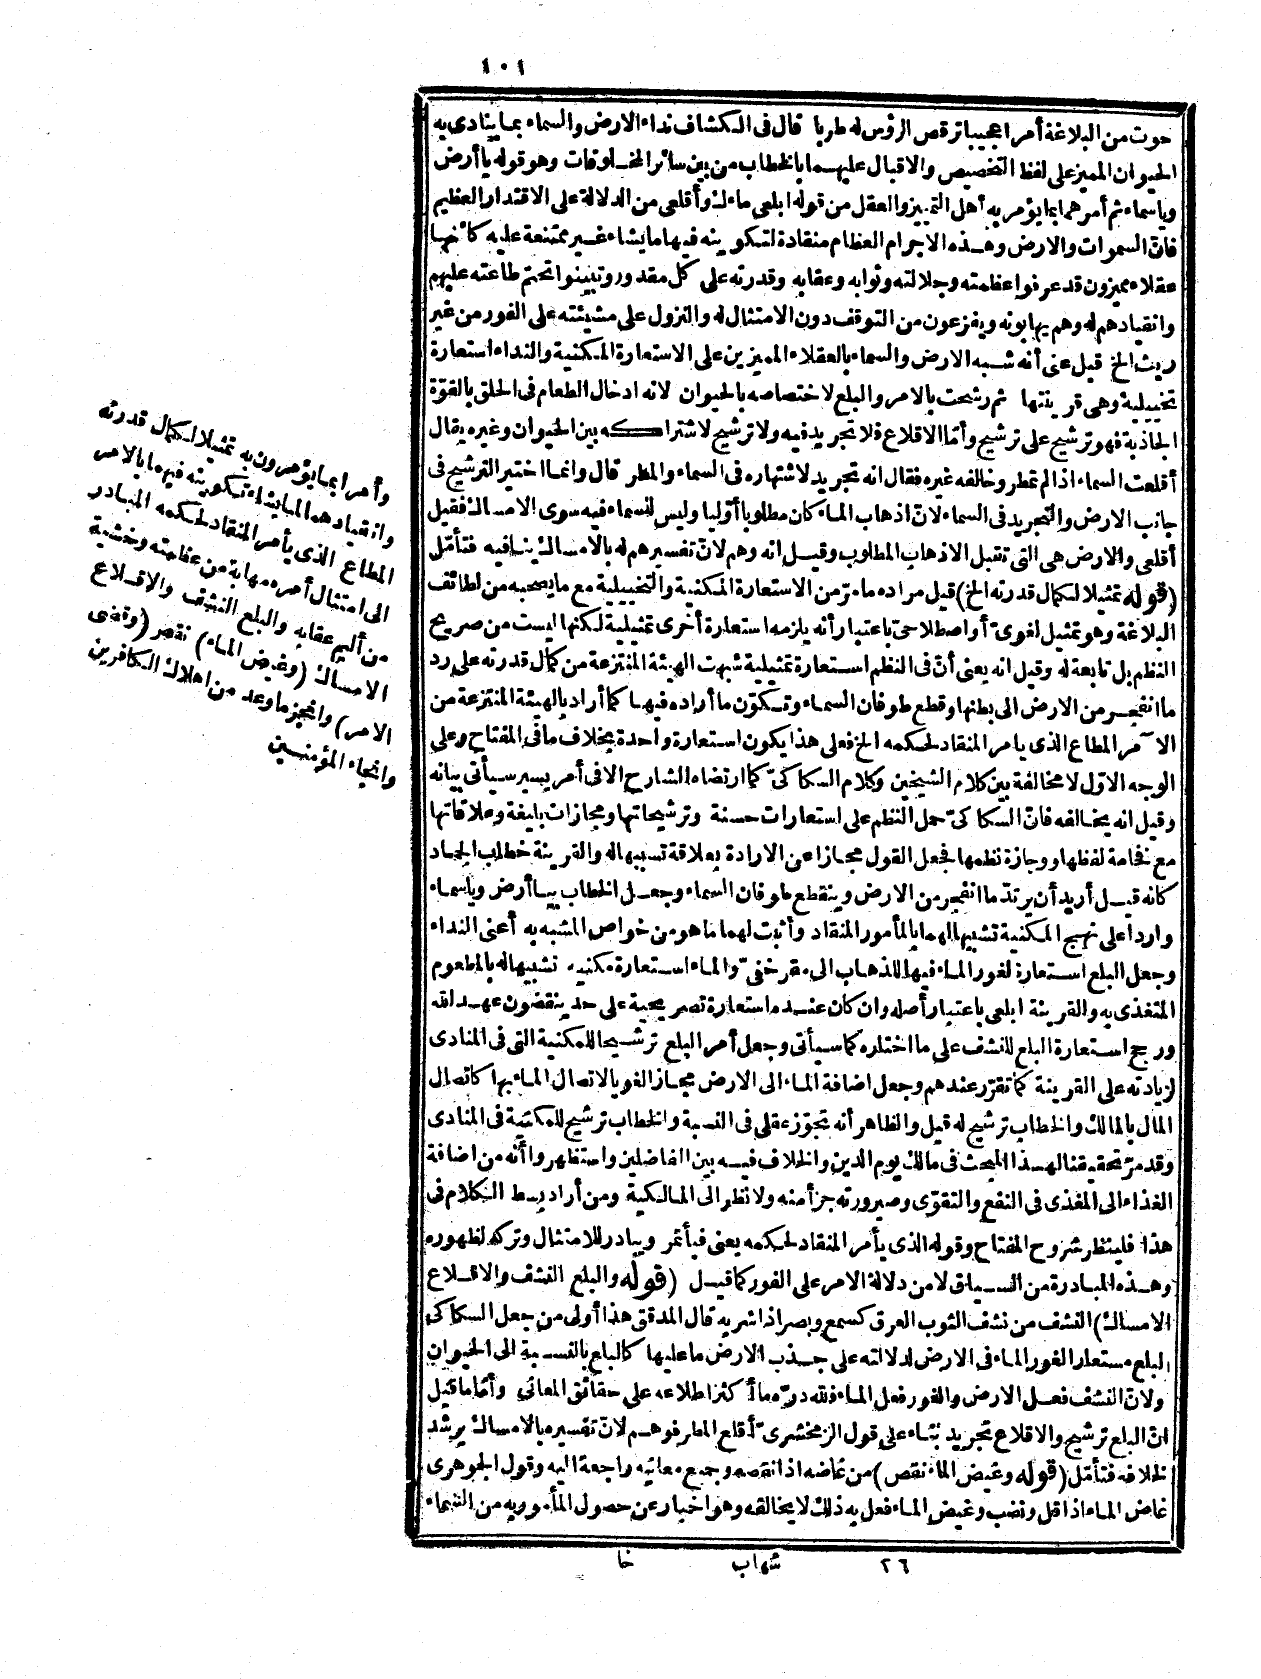 ١٠١
حوت من البلاغة أمرا عجيبا ترقص الرؤس له طربا قال فى الكشاف نداء الارض والسماء بما ينادى به
الحيوان المميز على لفظ التخصيص والاقبال عليهما بالخطاب من بين سائر المخلوقات وهو قوله يا أرض
ويا سماء ثم أمرهما بما يؤمر به أهل التمييز والعقل من قوله ابلعى ماءك وأقلعى من الدلالة على الاقتدار العظيم
فان السموات والارض وهذه الاجرام العظام منقادة لتكوينه فيها ما يشاء غير ممتنعة عليه كأنها
عقلاء مميزون قد عرفوا عظمته وجلالته وثوابه وعقابه وقدرته على كل مقدور وتبينوا تحتم طاعته عليهم
وانقيادهم له وهم يهابونه ويفزعون من التوقف دون الامتثال له والنزول على مشيئته على الفور من غير
ريث الخ قيل عنى أنه شبه الارض والسماء بالعقلاء المميزين على الاستعارة المكنية والنداء استعارة
تخييلية وهى قرينتها ثم رشحت بالامر والبلع لاختصاصه بالحيوان لانه ادخال الطعام فى الحلق بالقوة
الجاذبة فهو ترشيح على ترشيح وأما الاقلاع فلا تجريد فيه ولا ترشيح لاشتراكه بين الحيوان وغيره يقال
أقلعت السماء اذا لم تمطر وخالفه غيره فقال انه تجريد لاشتهاره فى السماء والمطر قال وانما اختير الترشيح فى
جانب الارض والتجريد فى السماء لان اذهاب الماء كان مطلوبا أوليا وليس للسماء فيه سوى الامساك فقيل
أقلعى والارض هى التى تقبل الاذهاب المطلوب وقيل انه وهم لان تفسيرهم له بالامساك ينافيه فتأمل
(قوله تمثيلا لكمال قدرته الخ) قيل مراده ما مر من الاستعارة المكنية والتخييلية مع ما يصحبه من لطائف
البلاغة وهو تمثيل لغوى أو اصطلاحى باعتبار أنه يلزمه استعارة أخرى تمثيلية لكنها ليست من صريح
النظم بل تابعة له وقيل انه يعنى أن فى النظم استعارة تمثيلية شبهت الهيئة المنتزعة من كمال قدرته على رد
ما انفجر من الارض الى بطنها وقطع طوفان السماء وتكون ما أراده فيها كما أراد بالهيئة المنتزعة من
الآمر المطاع الذى يامر المنقاد لحكمه الخ فعلى هذا يكون استعارة واحدة بخلاف ما فى المفتاح وعلى
الوجه الاول لا مخالفة بين كلام الشيخين وكلام السكاكى كما ارتضاه الشارح الا فى أمر يسير سيأتى بيانه
وقيل انه يخالفه فان السكاكى حمل النظم على استعارات حسنة وترشيحاتها ومجازات بليغة وعلاقاتها
مع فخامة لفظها ووجازة نظمها فجعل القول مجازا عن الارادة بعلاقة تسببها له والقرينة خطاب الجماد
كانه قيل أريد أن يرتد ما انفجر من الارض وينقطع طوفان السماء وجعل الخطاب بيا أرض ويا سماء
واردا على نهج المكنية تشبيها لهما بالمأمور المنقاد وأثبت لهما ما هو من خواص المشبه به أعنى النداء
وجعل البلع استعارة لغور الماء فيها للذهاب الى مقر خفى والماء استعارة مكنية تشبيها له بالمطعوم
المتغذى به والقرينة ابلعى باعتبار أصله وان كان عنده استعارة تصريحية على حد ينقضون عهد الله
ورجح استعارة البلع للنشف على ما اختاره كما سيأتى وجعل أمر البلع ترشيحا للمكنية التى فى المنادى
لزيادته على القرينة كما تقرر عندهم وجعل اضافة الماء الى الارض مجازا لغويا لاتصال الماء بها كاتصال
المال بالمالك والخطاب ترشيح له قيل والظاهر أنه تجوز عقلى فى النسبة والخطاب ترشيح للمكنية فى المنادى
وقد مر تحقيقنا لهذا المبحث فى مالك يوم الدين والخلاف فيه بين الفاضلين واستظهروا أنه من اضافة
الغذاء الى المغذى فى النفع والتقوى وصيرورته جزأ منه ولا نظر الى المالكية ومن أراد بسط الكلام فى
هذا فلينظر شروح المفتاح وقوله الذى يأمر المنقاد لحكمه يعنى فيأتمر ويبادر للامتثال وتركه لظهوره
وهذه المبادرة من السياق لا من دلالة الامر على الفور كما قيل (قوله والبلع النشف والاقلاع
الامساك) النشف من نشف الثوب العرق كسمع وبصر اذا شربه قال المدقق هذا أولى من جعل السكاكى
البلع مستعارا لغور الماء فى الارض لدلالته على جذب الارض ما عليها كالبلع بالنسبة الى الحيوان
ولان النشف فعل الارض والغور فعل الماء فلله دره ما أكثر اطلاعه على حقائق المعانى وأما ما قيل
ان البلع ترشيح والاقلاع تجريد بناء على قول الزمخشرى أقلع المطر فوهم لان تفسيره بالامساك يرشد
لخلافه فتأمل (قوله وغيض الماء نقص) من غاضه اذا نقصه وجميع معانيه راجعة اليه وقول الجوهرى
غاض الماء اذا قل ونضب وغيض الماء فعل به ذلك لا يخالفه وهو اخبار عن حصول المأمور به من السماء
٢٦ شهاب خا
وأمرا بما يؤمرون به تمثيلا لكمال قدرته
وانقيادهما لما يشاء تكوينه فيهما بالامر
المطاع الذى يأمر المنقاد لحكمه المبادر
الى امتثال أمره مهابة من عظمته وخشية
من أليم عقابه والبلع النشف والاقلاع
الامساك (وغيض الماء) نقص (وقضى
الامر) وانجز ما وعد من اهلاك الكافرين
وانجاء المؤمنين